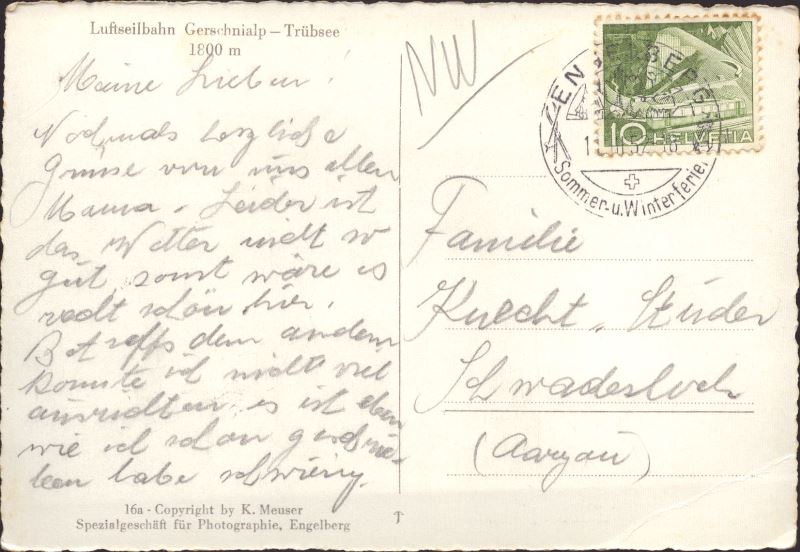 Luftseilbahn Gerschnialp – Trübsee
1800 m
Meine Lieben!
Nochmals herzliche
Grüsse von uns allen
Mama. Leider ist
das Wetter nicht so
gut, sonst wäre es
recht schön hier.
Betreffs dem andern
konnte ich nicht viel
ausrichten es ist eben
wie ich schon geschrie-
ben habe schwierig.
16a - Copyright by K. Meuser
Spezialgeschäft für Photographie, Engelberg
NW
ENGELBERG
Sommer- u. Winterferien
10 HELVETIA
Familie
Knecht-Studer
Schwaderloch
(Aargau)